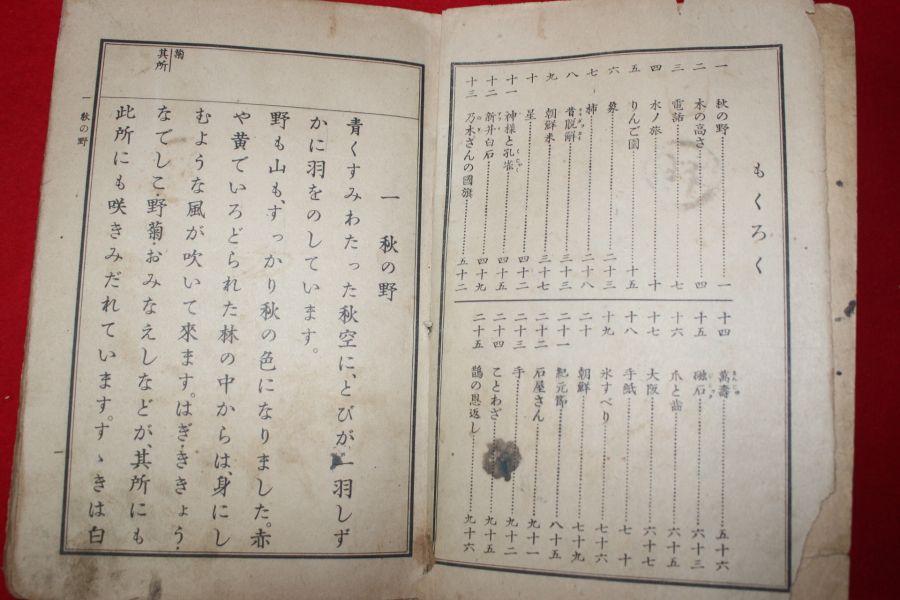 もくろく
一 秋の野 一
二 木の高さ 四
三 電話 七
四 水ノ旅 十
五 りんご園 十五
六 象 二十三
七 柿 二十八
八 昔脱解 三十三
九 朝鮮米 三十七
十 星 四十二
十一 神様と孔雀 四十五
十二 新井白石 四十九
十三 乃木さんの國旗 五十二
十四 萬壽 五十六
十五 磁石 六十三
十六 爪と齒 六十五
十七 大阪 六十七
十八 手紙 七十
十九 氷すべり 七十六
二十 朝鮮 七十九
二十一 紀元節 八十五
二十二 石屋さん 九十一
二十三 手 九十二
二十四 ことわざ 九十五
二十五 鵲の恩返し 九十六
一 秋の野
青くすみわたった秋空に、とびが一羽しず
かに羽をのしています。
野も山も、すっかり秋の色になりました。赤
や黄でいろどられた林の中からは、身にし
むような風が吹いて來ます。はぎ・ききょう・
なでしこ・野菊・おみなえしなどが、其所にも
此所にも咲きみだれています。すゝきは白
菊
其所
一 秋の野
一